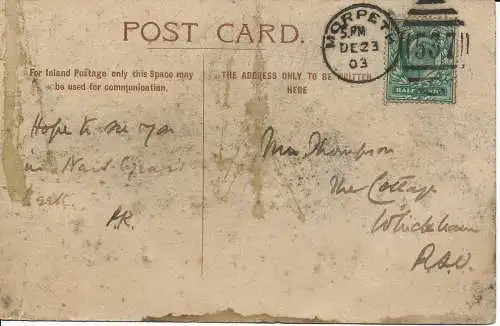 POST CARD.
MORPETH
5.PM
DE 23
03
HALFPENNY
For Inland Postage only this Space may
be used for communication.
THE ADDRESS ONLY TO BE WRITTEN
HERE
Hope to see you
in
week.
P.R.
Mrs Thompson
The Cottage
Whickham
R.S.O.